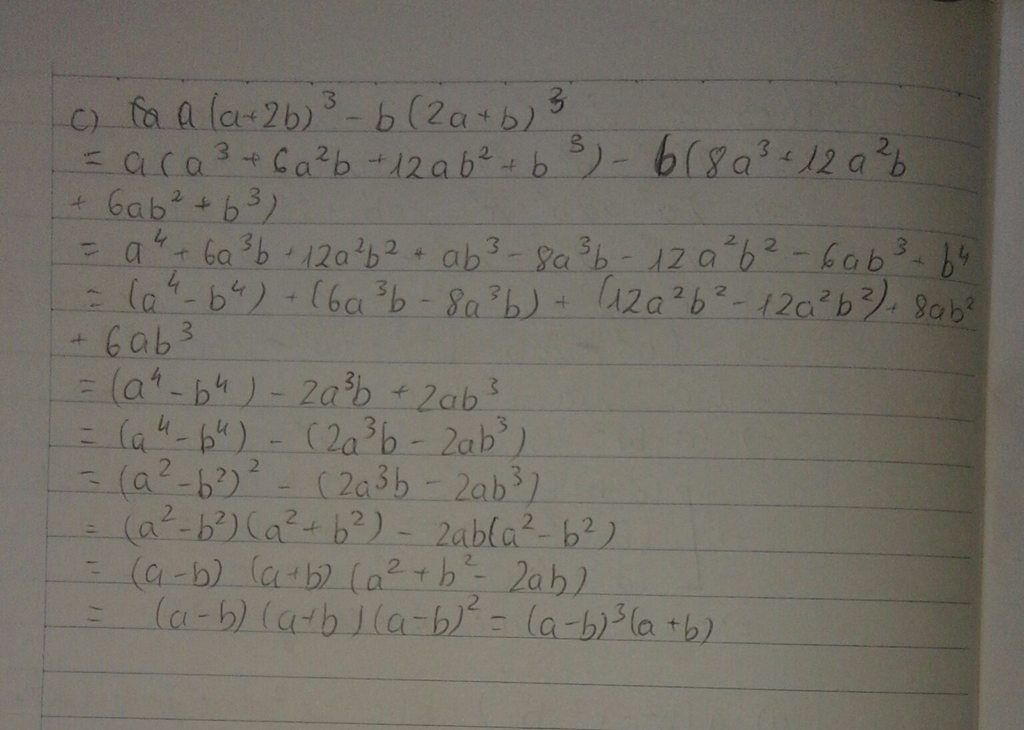 c) a(a+2b)³ - b(2a+b)³
= a(a³ + 6a²b + 12ab² + b³) - b(8a³ + 12a²b
+ 6ab² + b³)
= a⁴ + 6a³b + 12a²b² + ab³ - 8a³b - 12a²b² - 6ab³ - b⁴
= (a⁴ - b⁴) + (6a³b - 8a³b) + (12a²b² - 12a²b²) + 8ab²
+ 6ab³
= (a⁴ - b⁴) - 2a³b + 2ab³
= (a⁴ - b⁴) - (2a³b - 2ab³)
= (a² - b²)² - (2a³b - 2ab³)
= (a² - b²)(a² + b²) - 2ab(a² - b²)
= (a - b) (a+b) (a² + b² - 2ab)
= (a - b) (a+b) (a - b)² = (a-b)³(a+b)